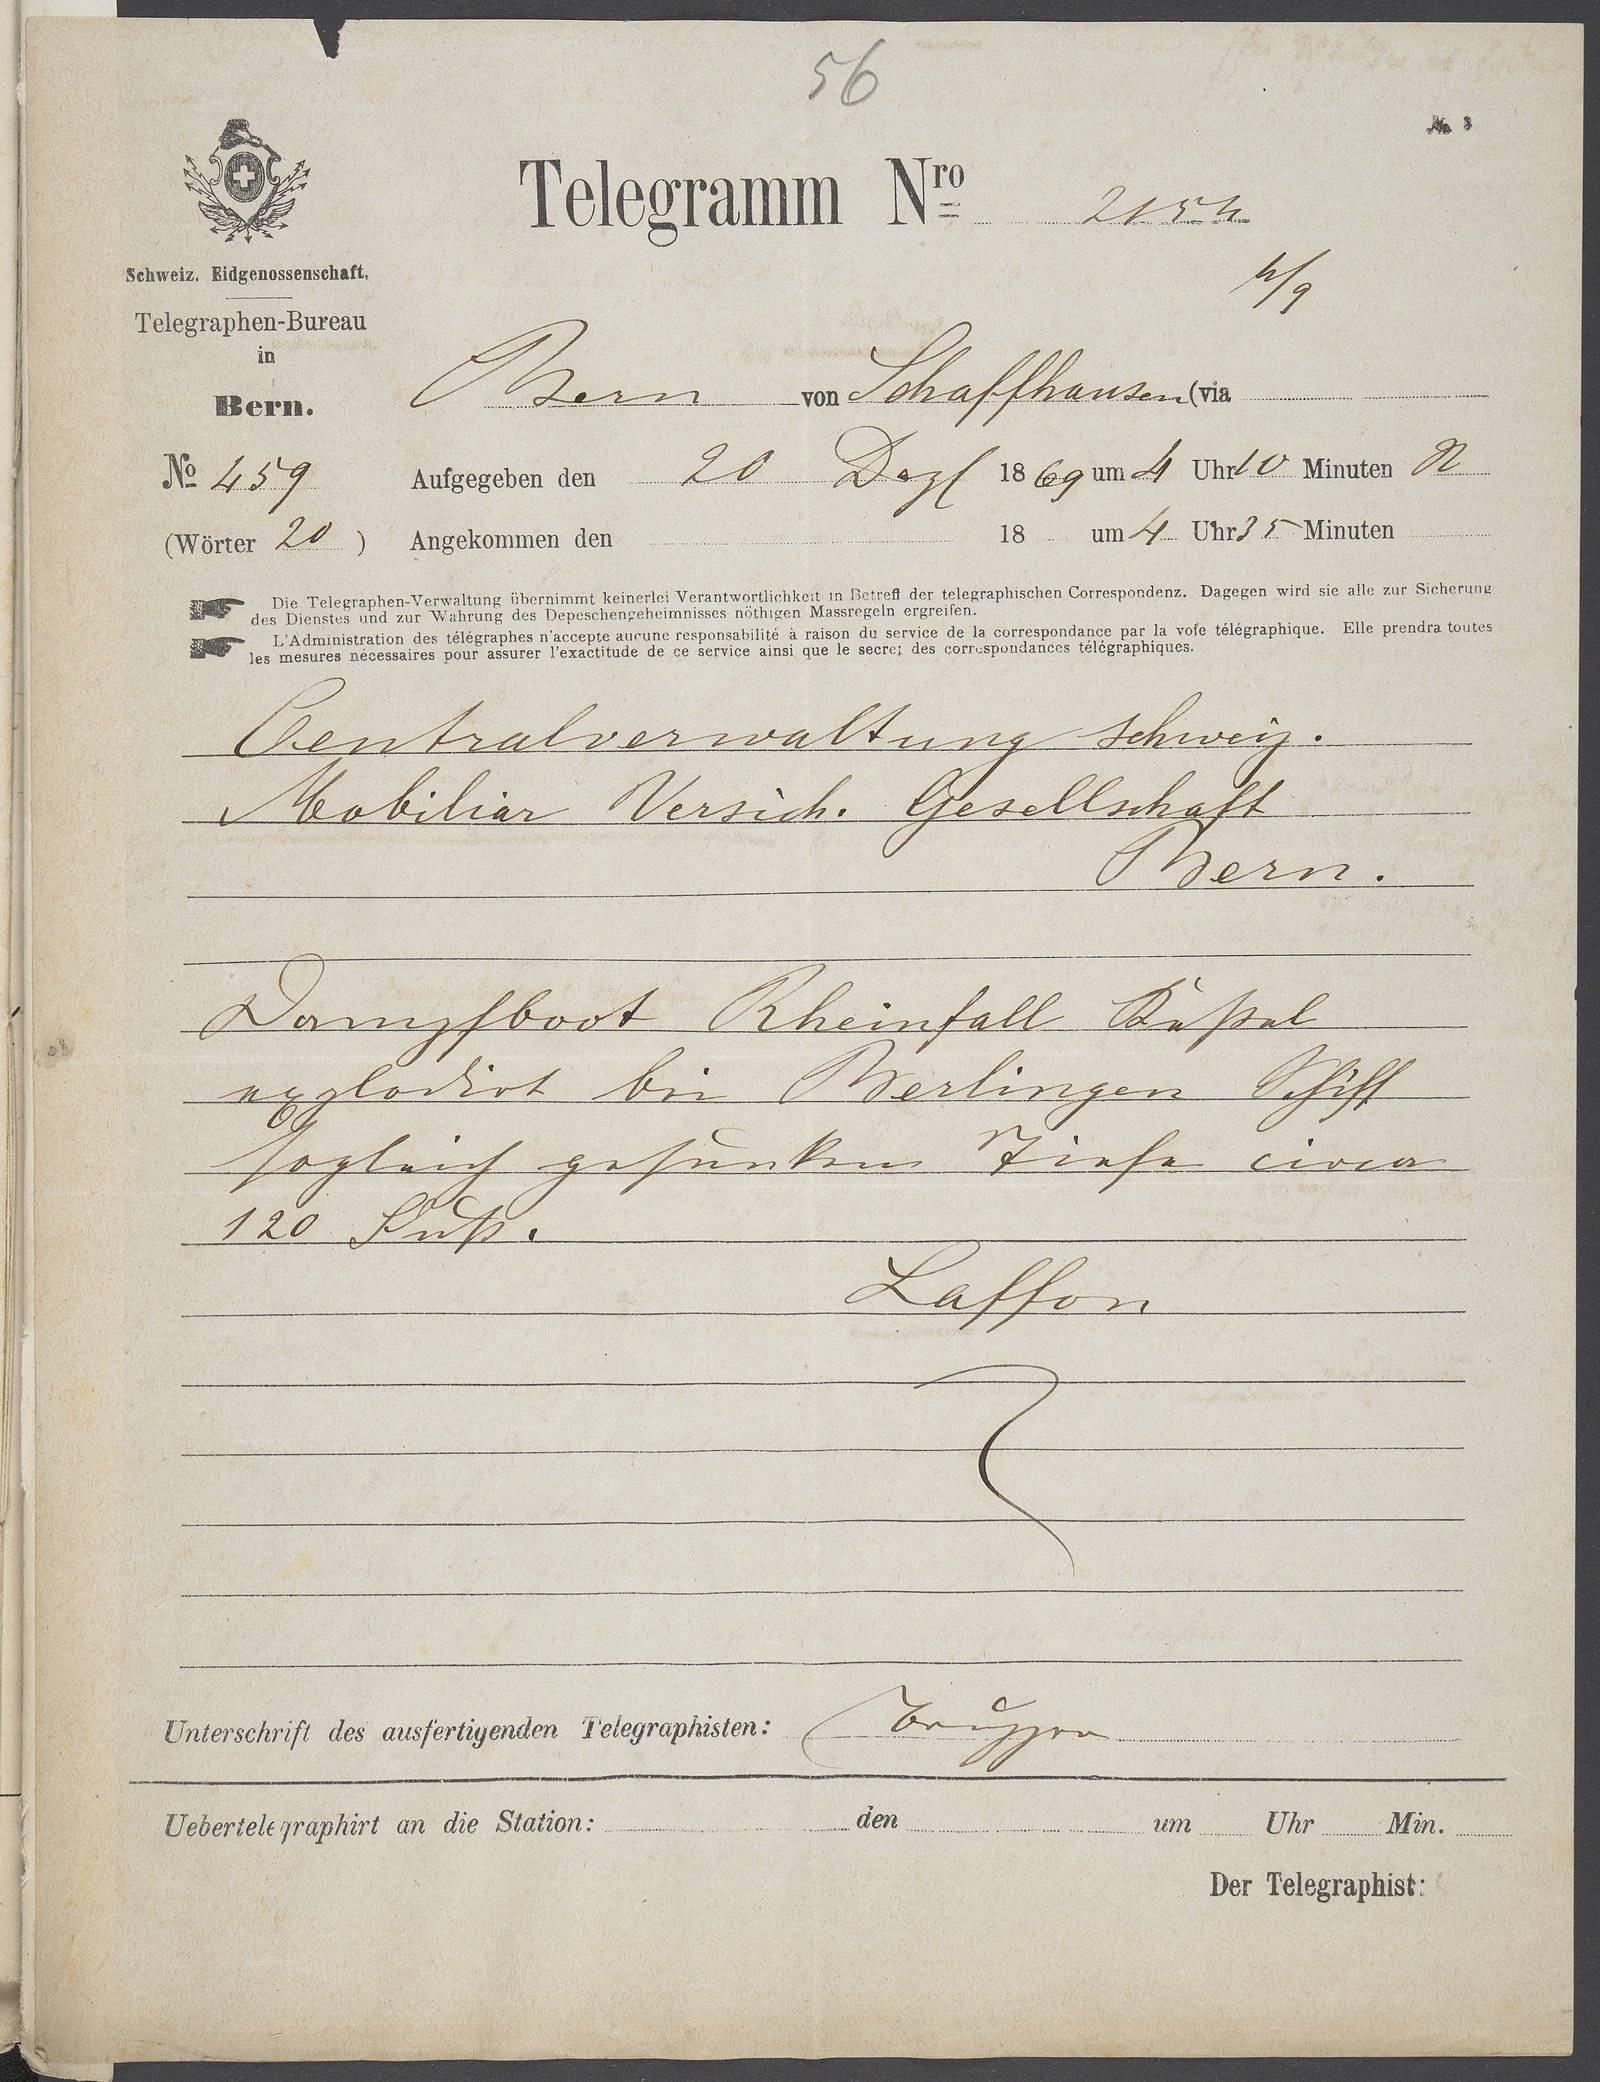 56
№ 3
Telegramm Nro 2154
4/9
Schweiz. Eidgenossenschaft.
Telegraphen-Bureau
in
Bern.
Bern von Schaffhausen (via
No 459 Aufgegeben den 20 Dez 1869 um 4 Uhr 10 Minuten N
(Wörter 20 ) Angekommen den 18 um 4 Uhr 35 Minuten
Die Telegraphen-Verwaltung übernimmt keinerlei Verantwortlichkeit in Betreff der telegraphischen Correspondenz. Dagegen wird sie alle zur Sicherung
des Dienstes und zur Wahrung des Depeschengeheimnisses nöthigen Massregeln ergreifen.
L'Administration des télégraphes n'accepte aucune responsabilité à raison du service de la correspondance par la voie télégraphique. Elle prendra toutes
les mesures nécessaires pour assurer l'exactitude de ce service ainsi que le secret des correspondances télégraphiques.
Centralverwaltung schweiz.
Mobiliar Versich. Gesellschaft
Bern.
Dampfboot Rheinfall Keßel
explodirt bei Berlingen Schiff
sogleich gesunken Tiefe circa
120 Fuß.
Laffon
Unterschrift des ausfertigenden Telegraphisten:
Uebertelegraphirt an die Station: den um Uhr Min.
Der Telegraphist: